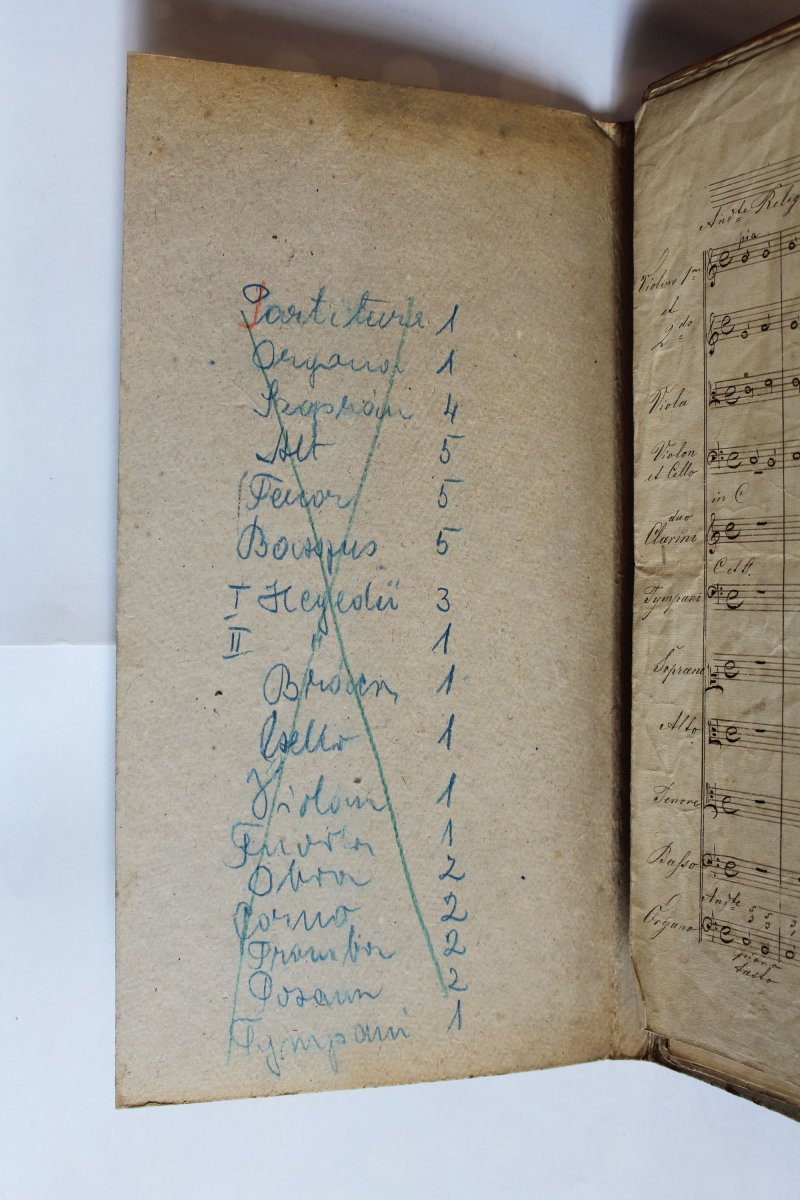 Partitura 1
Organo 1
Szoprán 4
Alt 5
Tenor 5
Basszus 5
I Hegedü 3
II " 1
Bracsa 1
Csello 1
Violon 1
1
Oboa 2
Corno 2
Tromba 2
Posaun 2
Tympani 1
Andte Relig
pia
Violino 1mo
et
2do
Viola
Violon
et Cello
in C
duo
Clarini
C et G.
Tympani
Soprano
Alto
Tenore
Basso
Andte
Organo
piano
tasto